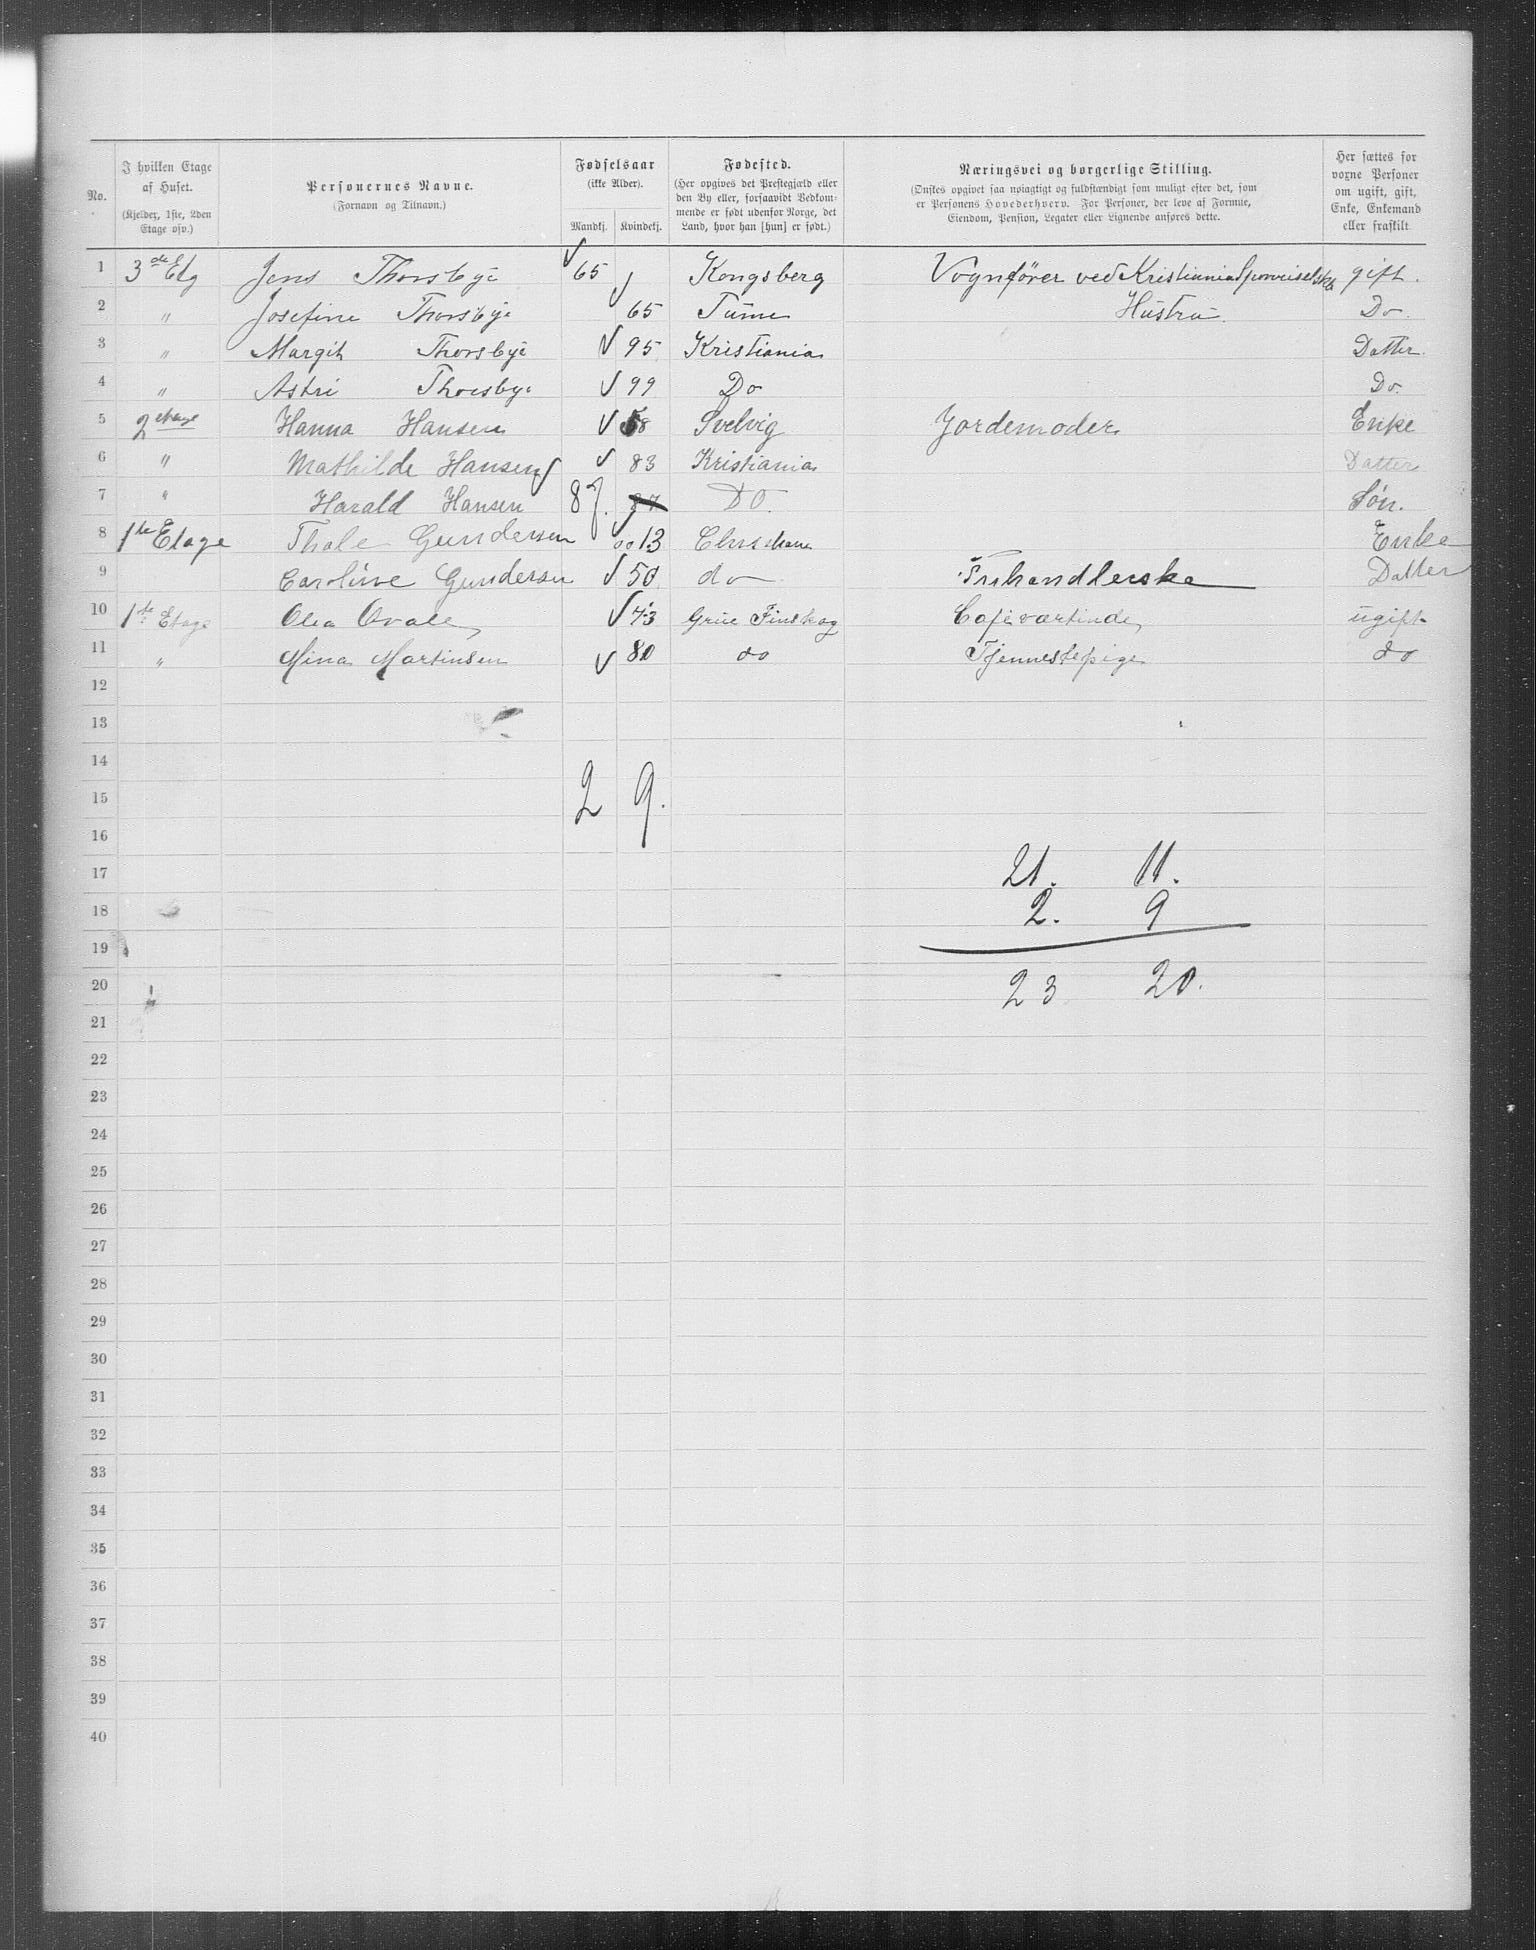 No.
I hvilken Etage af Huset.
(Kjelder, 1ste, 2den Etage osv.)
Personernes Navne.
(Fornavn og Tilnavn.)
Fødselsaar
(ikke Alder).
Mandkj. Kvindekj.
Fødested.
(Her opgives det Prestegjæld eller den By eller, forsaavidt Vedkommende er født udenfor Norge, det Land, hvor han [hun] er født.)
Næringsvei og borgerlige Stilling.
(Ønskes opgivet saa nøiagtigt og fuldstændigt som muligt efter det, som er Personens Hovederhverv. For Personer, der leve af Formue, Eiendom, Pension, Legater eller Lignende anføres dette.
Her sættes for vorne Personer om ugift, gift, Enke, Enkemand eller fraskilt
1 3del Etg Jens Thorsbye 65 Kongsberg Vognfører ved Kristiania Sporveiselsk gift.
2 " Josefine Thorsbye 65 Tüme Hustru Do.
3 " Margit Thorsbye 95 Kristiania Datter.
4 " Astri Thorsbye 99 Do Do.
5 2 etage Hanna Hansen 58 Svelvig Jordemoder Enke
6 " Mathilde Hansen 83 Kristiania Datter
7 " Harald Hansen 87. 87 DO. Søn.
8 1ste Etage Thale Gundersen 0013 Enke
9 Caroline Gundersen 50 do Frihandlerske Datter
10 1ste Etage Olea Ovale 73 Grue Finskog Cafeværtinde ugift
11 " Mina Martinsen 80 do Tjennestepige do
12
13
14
15 2 9.
16
17 21. 11.
18 2. 9
19
20 23 20.
21
22
23
24
25
26
27
28
29
30
31
32
33
34
35
36
37
38
39
40